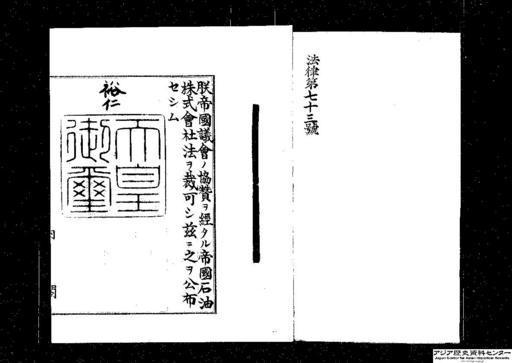 法律第七十三號
朕帝國議會ノ協贊ヲ經タル帝國石油
株式會社法ヲ裁可シ茲ニ之ヲ公布
セシム
裕仁
天皇
御璽
内
閣
アジア歴史資料センター
Japan Center for Asian Historical Records